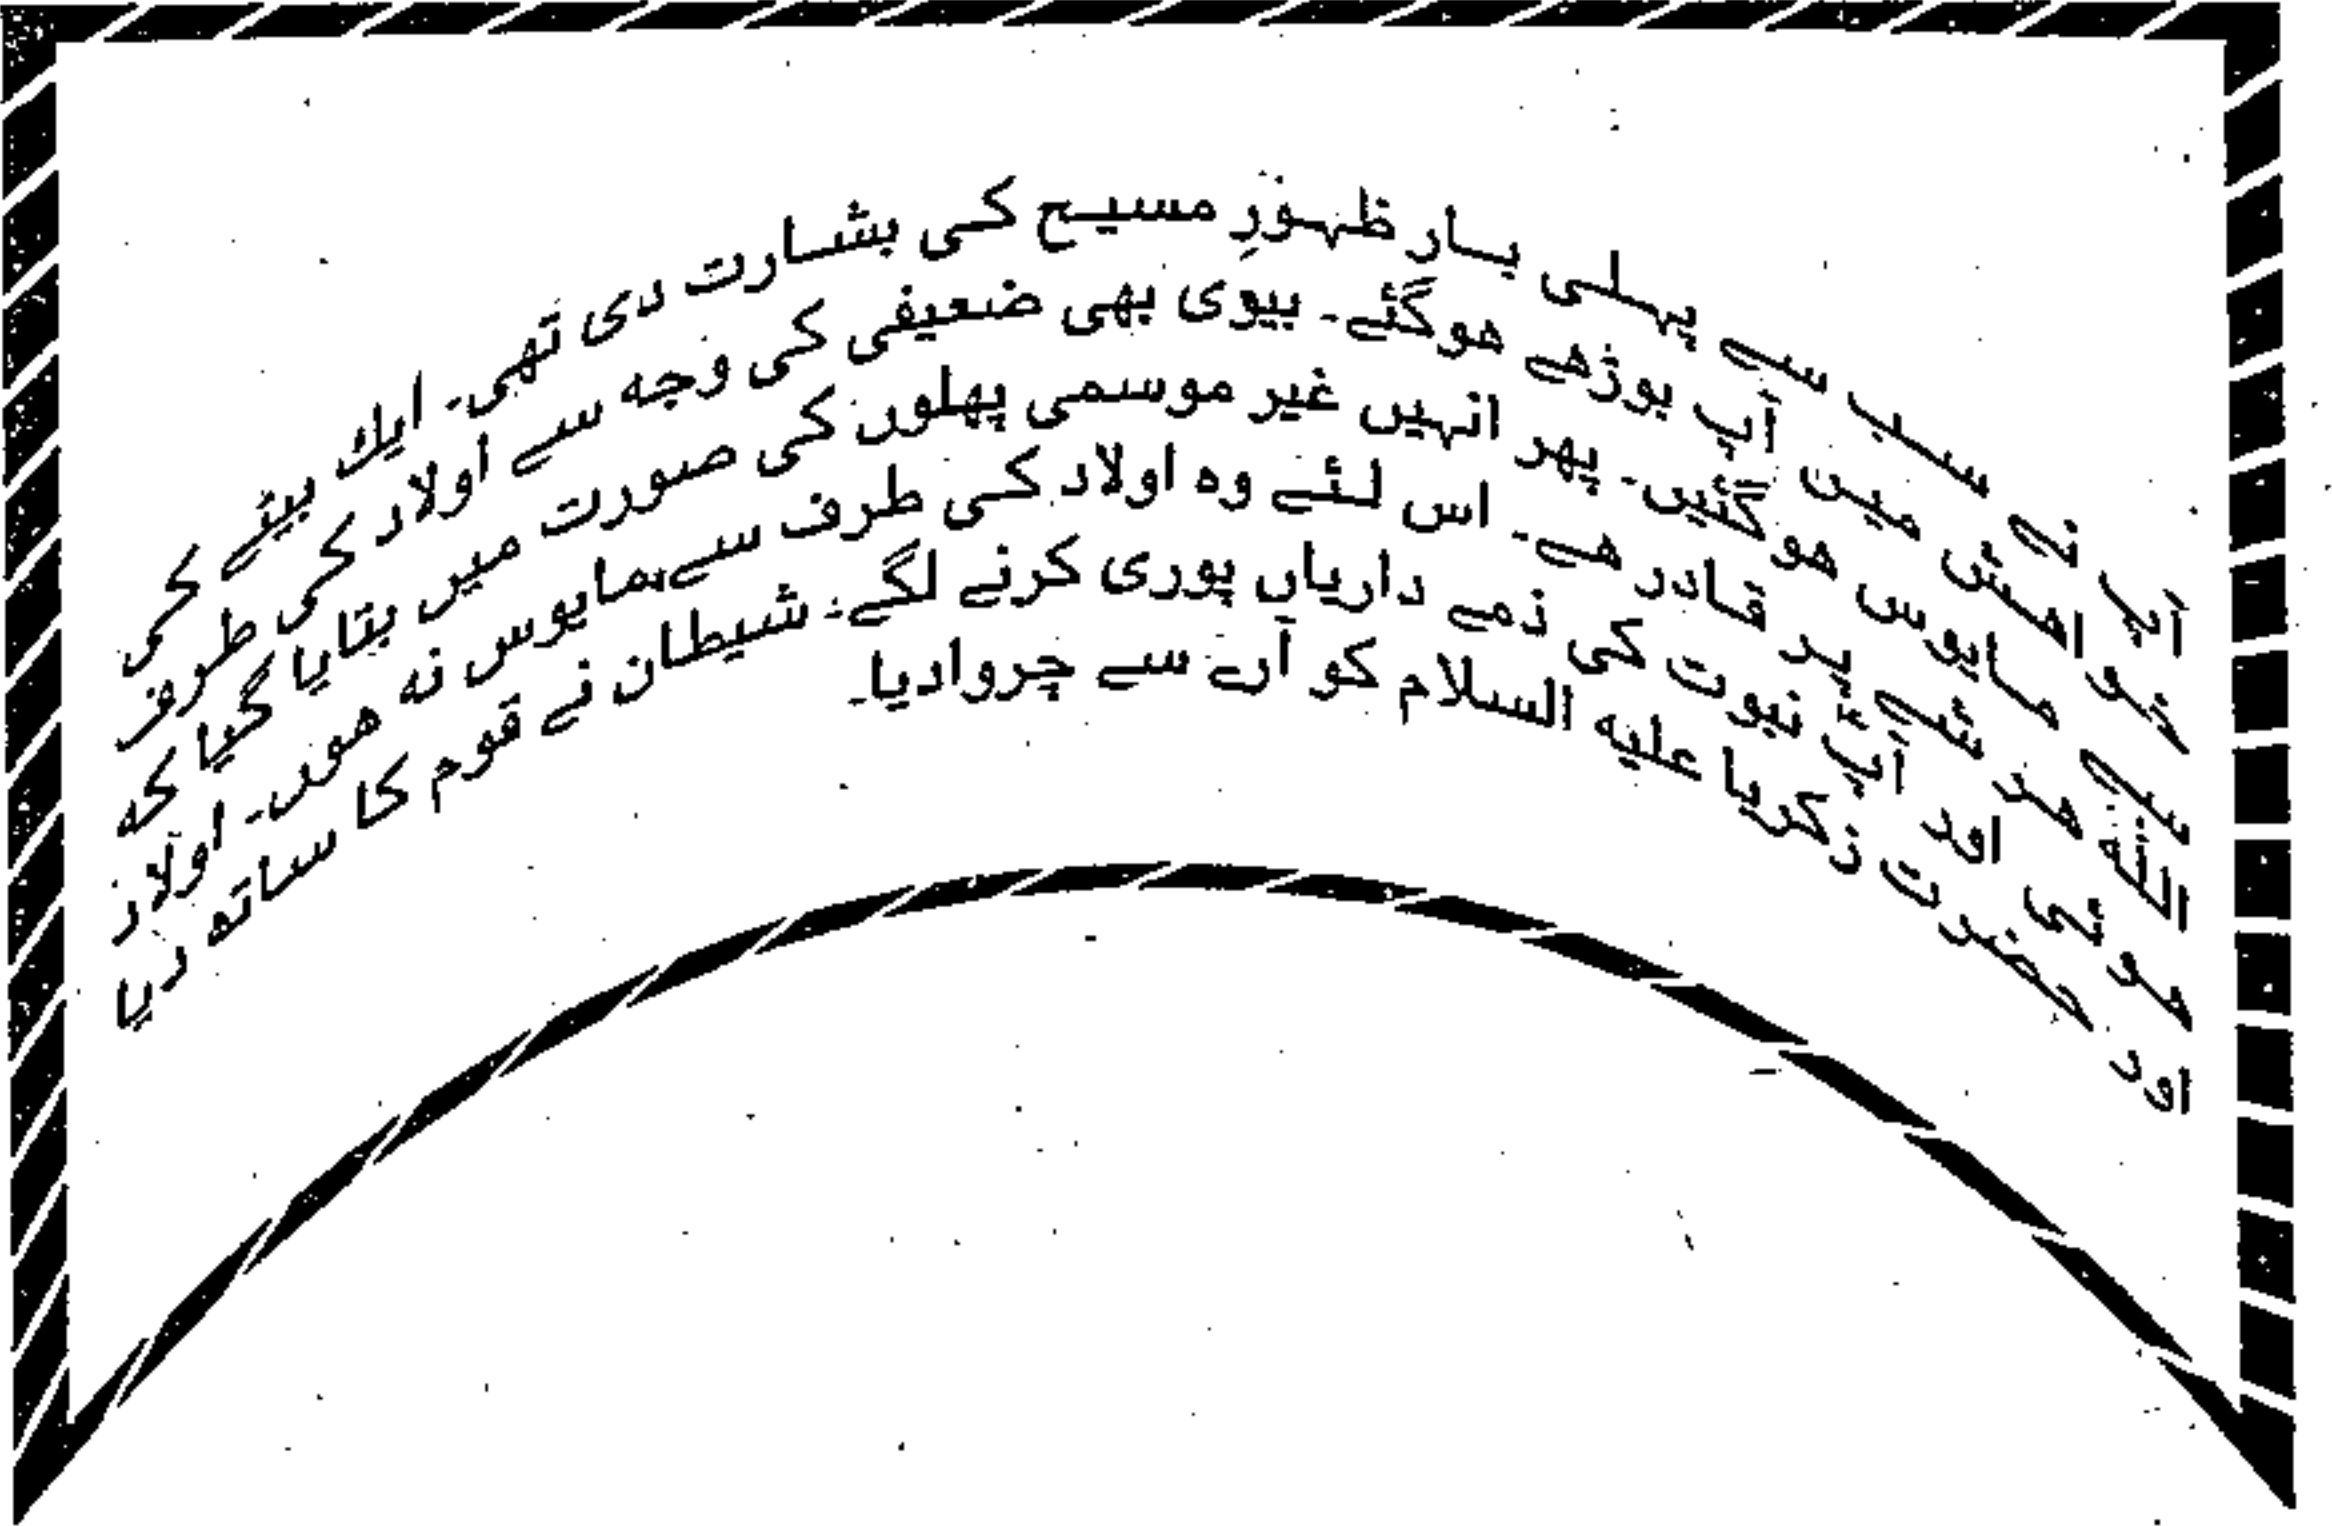 آپ نے سب سے پہلی بار ظہورِ مسیح کی بشارت دی تھی۔ ایک بیٹے کی
جو اھش میں آپ بوڑھے ھوگئے۔ بیوی بھی ضعیفی کی وجہ سے اولاد کی طرف
سے مایوس ھو گئیں۔ پھر انہیں غیر موسمی پھلوں کی صورت میں بتایا گیا کہ
اللّٰہ ھر شے پر قادر ھے۔ اس لئے وہ اولاد کی طرف سے مایوس نہ ھوں۔ اولاد
ھو ئی اور آپؑ نبوت کی ذمے داریاں پوری کرنے لگے۔ شیطان نے قوم کا ساتھ دیا
اور حضرت زکریا علیہ السلام کو آرے سے چروادیا۔